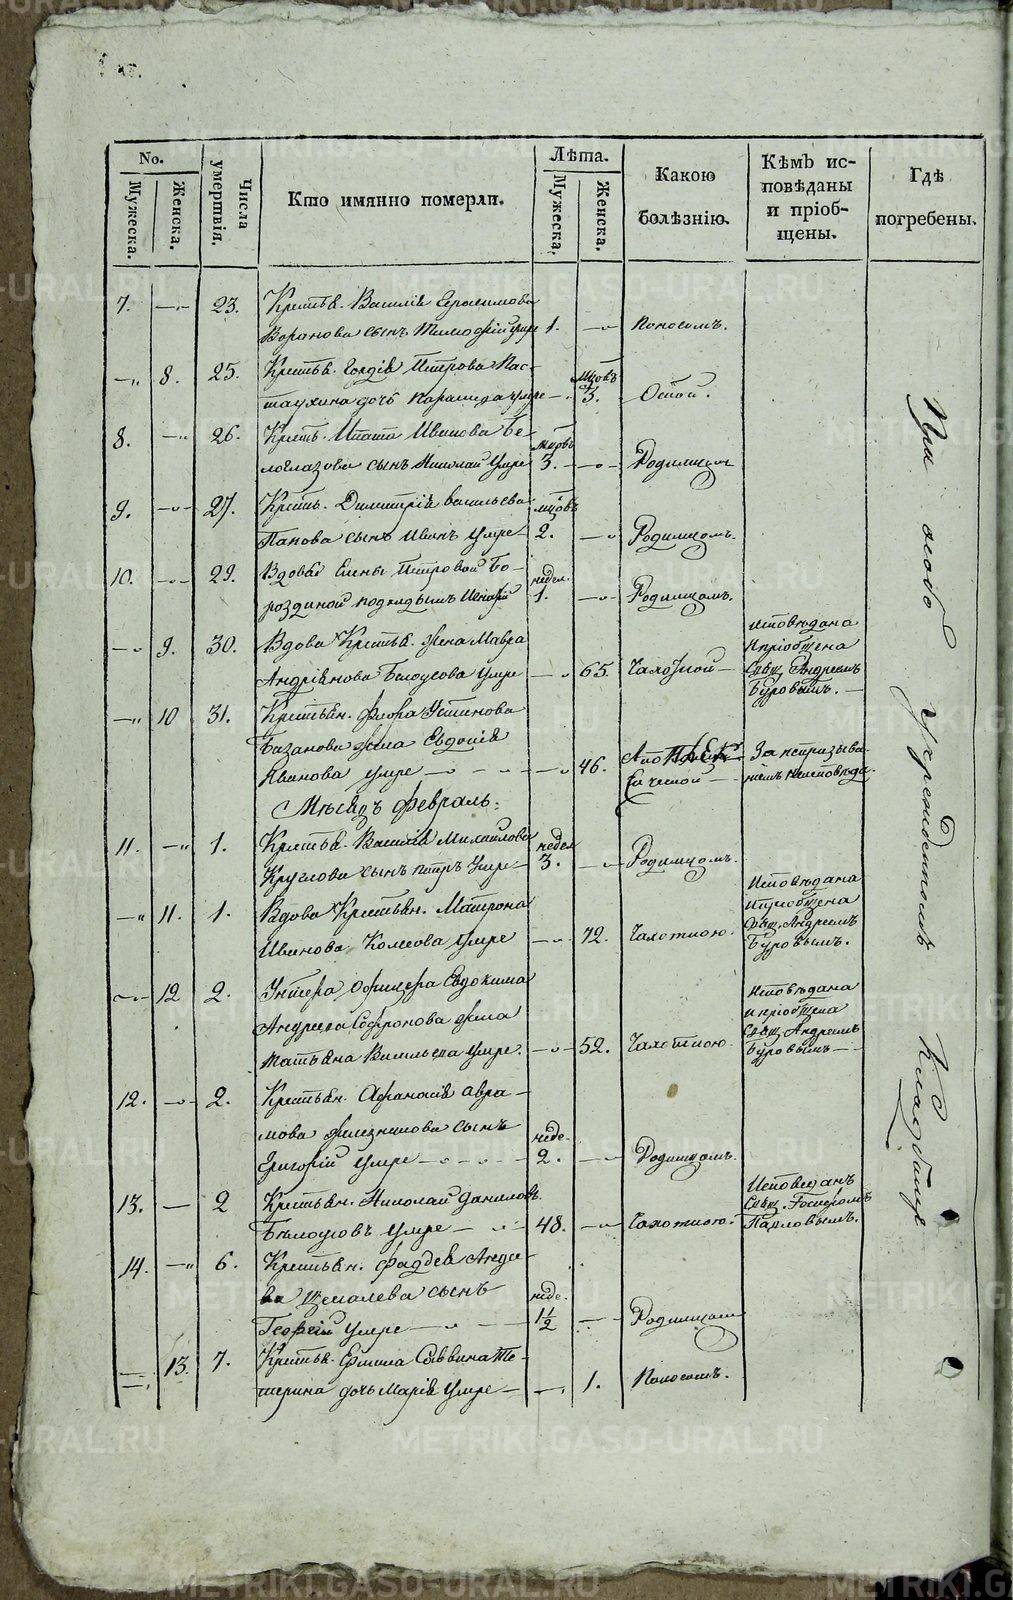 No.
Мужеска.
Женска.
Числа умертвія.
Кто имянно померли.
Лѣта.
Мужеска.
Женска.
Какою болѣзнію.
Кѣмъ ис-
повѣданы
и пріоб-
щены.
Гдѣ
погребены.
7. 23. Крестья. Василія Герасимова
Воронова сынъ Тимофій умре 1. Поносомъ.
8. 25. Крестья. Гордія Петрова Пас-
таухина дочь Параскева умре мцовъ 3. Оспой.
8. 26. Кресть. Ипата Иванова Бе-
логлазова сынъ Николай умре мцовъ 3. Родимцомъ
9. 27. Кресть. Димитрія Васильева
Панова сынъ Иванъ умре мцовъ 2. Родимцомъ.
10. 29. Вдовы Елены Петровой Бо-
роздиной недел. 1. Родимцомъ.
9. 30. Вдова Крестья. жена Мавра
Андріянова Белоусова умре 65. Чахоткой
исповѣдана
и пріобщена
Свщ. Андреемъ
Буровымъ.
10 31. Крестьян. Флора Устинова
Базанова жена Евдокія
Иванова умре 46.
За непризыва-
ніемъ неисповѣда.
Мѣсяцъ февраль:
11. 1. Крестья. Василія Михайлова
Круглова сынъ Петръ умре недел 3. Родимцомъ.
11. 1. Вдова Крестьян. Матрона
Иванова умре 72. Чахоткою.
Исповѣдана
и пріобщена
Свщ. Андреемъ
Буровымъ.
12 2. Унтера офицера Евдокима
Андреева Софронова жена
Татьяна Васильева умре. 52. Чахоткою.
Исповѣдана
и пріобщена
Свщ. Андреемъ
Буровымъ
12. 2. Крестьян. Афанасія Авра-
мова сынъ
Григорій умре неде. 2. Родимцомъ.
13. 2 Крестьян. Николай Даниловъ
Бѣлоусовъ умре 48. Чахоткою.
Исповеданъ
Свщ.
Павловымъ.
14. 6. Крестьян. Фаддея
сынъ
Георгій умре неде. 1½ Родимцомъ
13. 7. Крестья. Саввина Те-
терина дочь Марія умре 1. Поносомъ.
При особо учрежденномъ Кладбище
METRIKI.GASO-URAL.RU